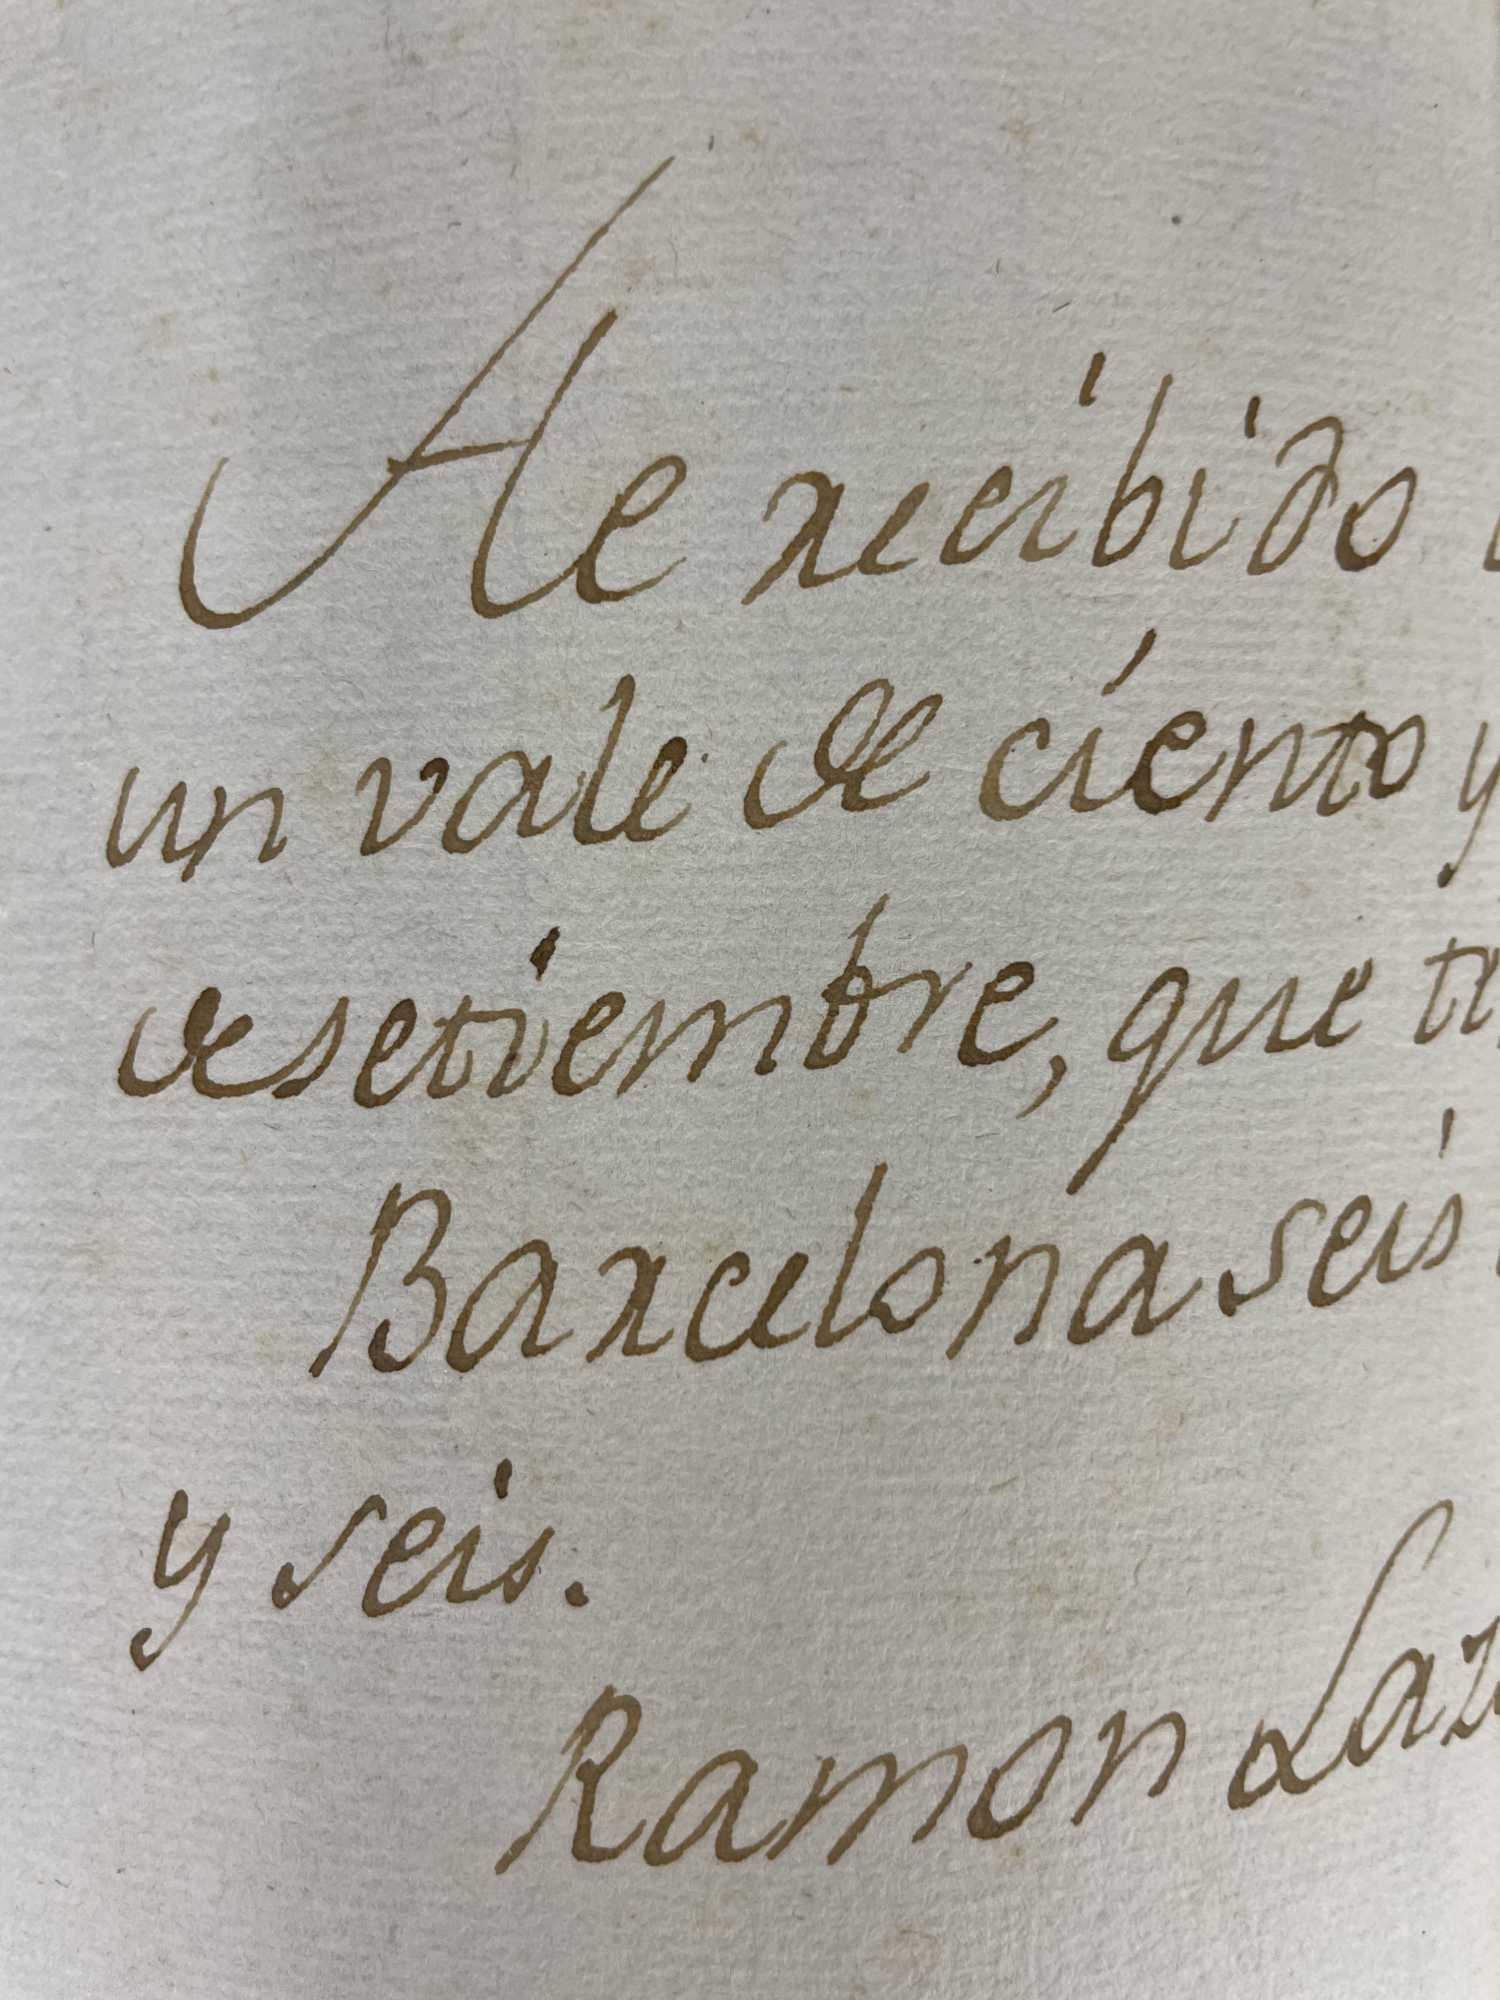 He recibido
un vale de ciento y
de setiembre, que
Barcelona seis
y seis.
Ramon